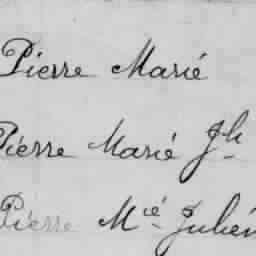 Pierre Marié
Pierre Marié Jh
Pierre Mié Julién